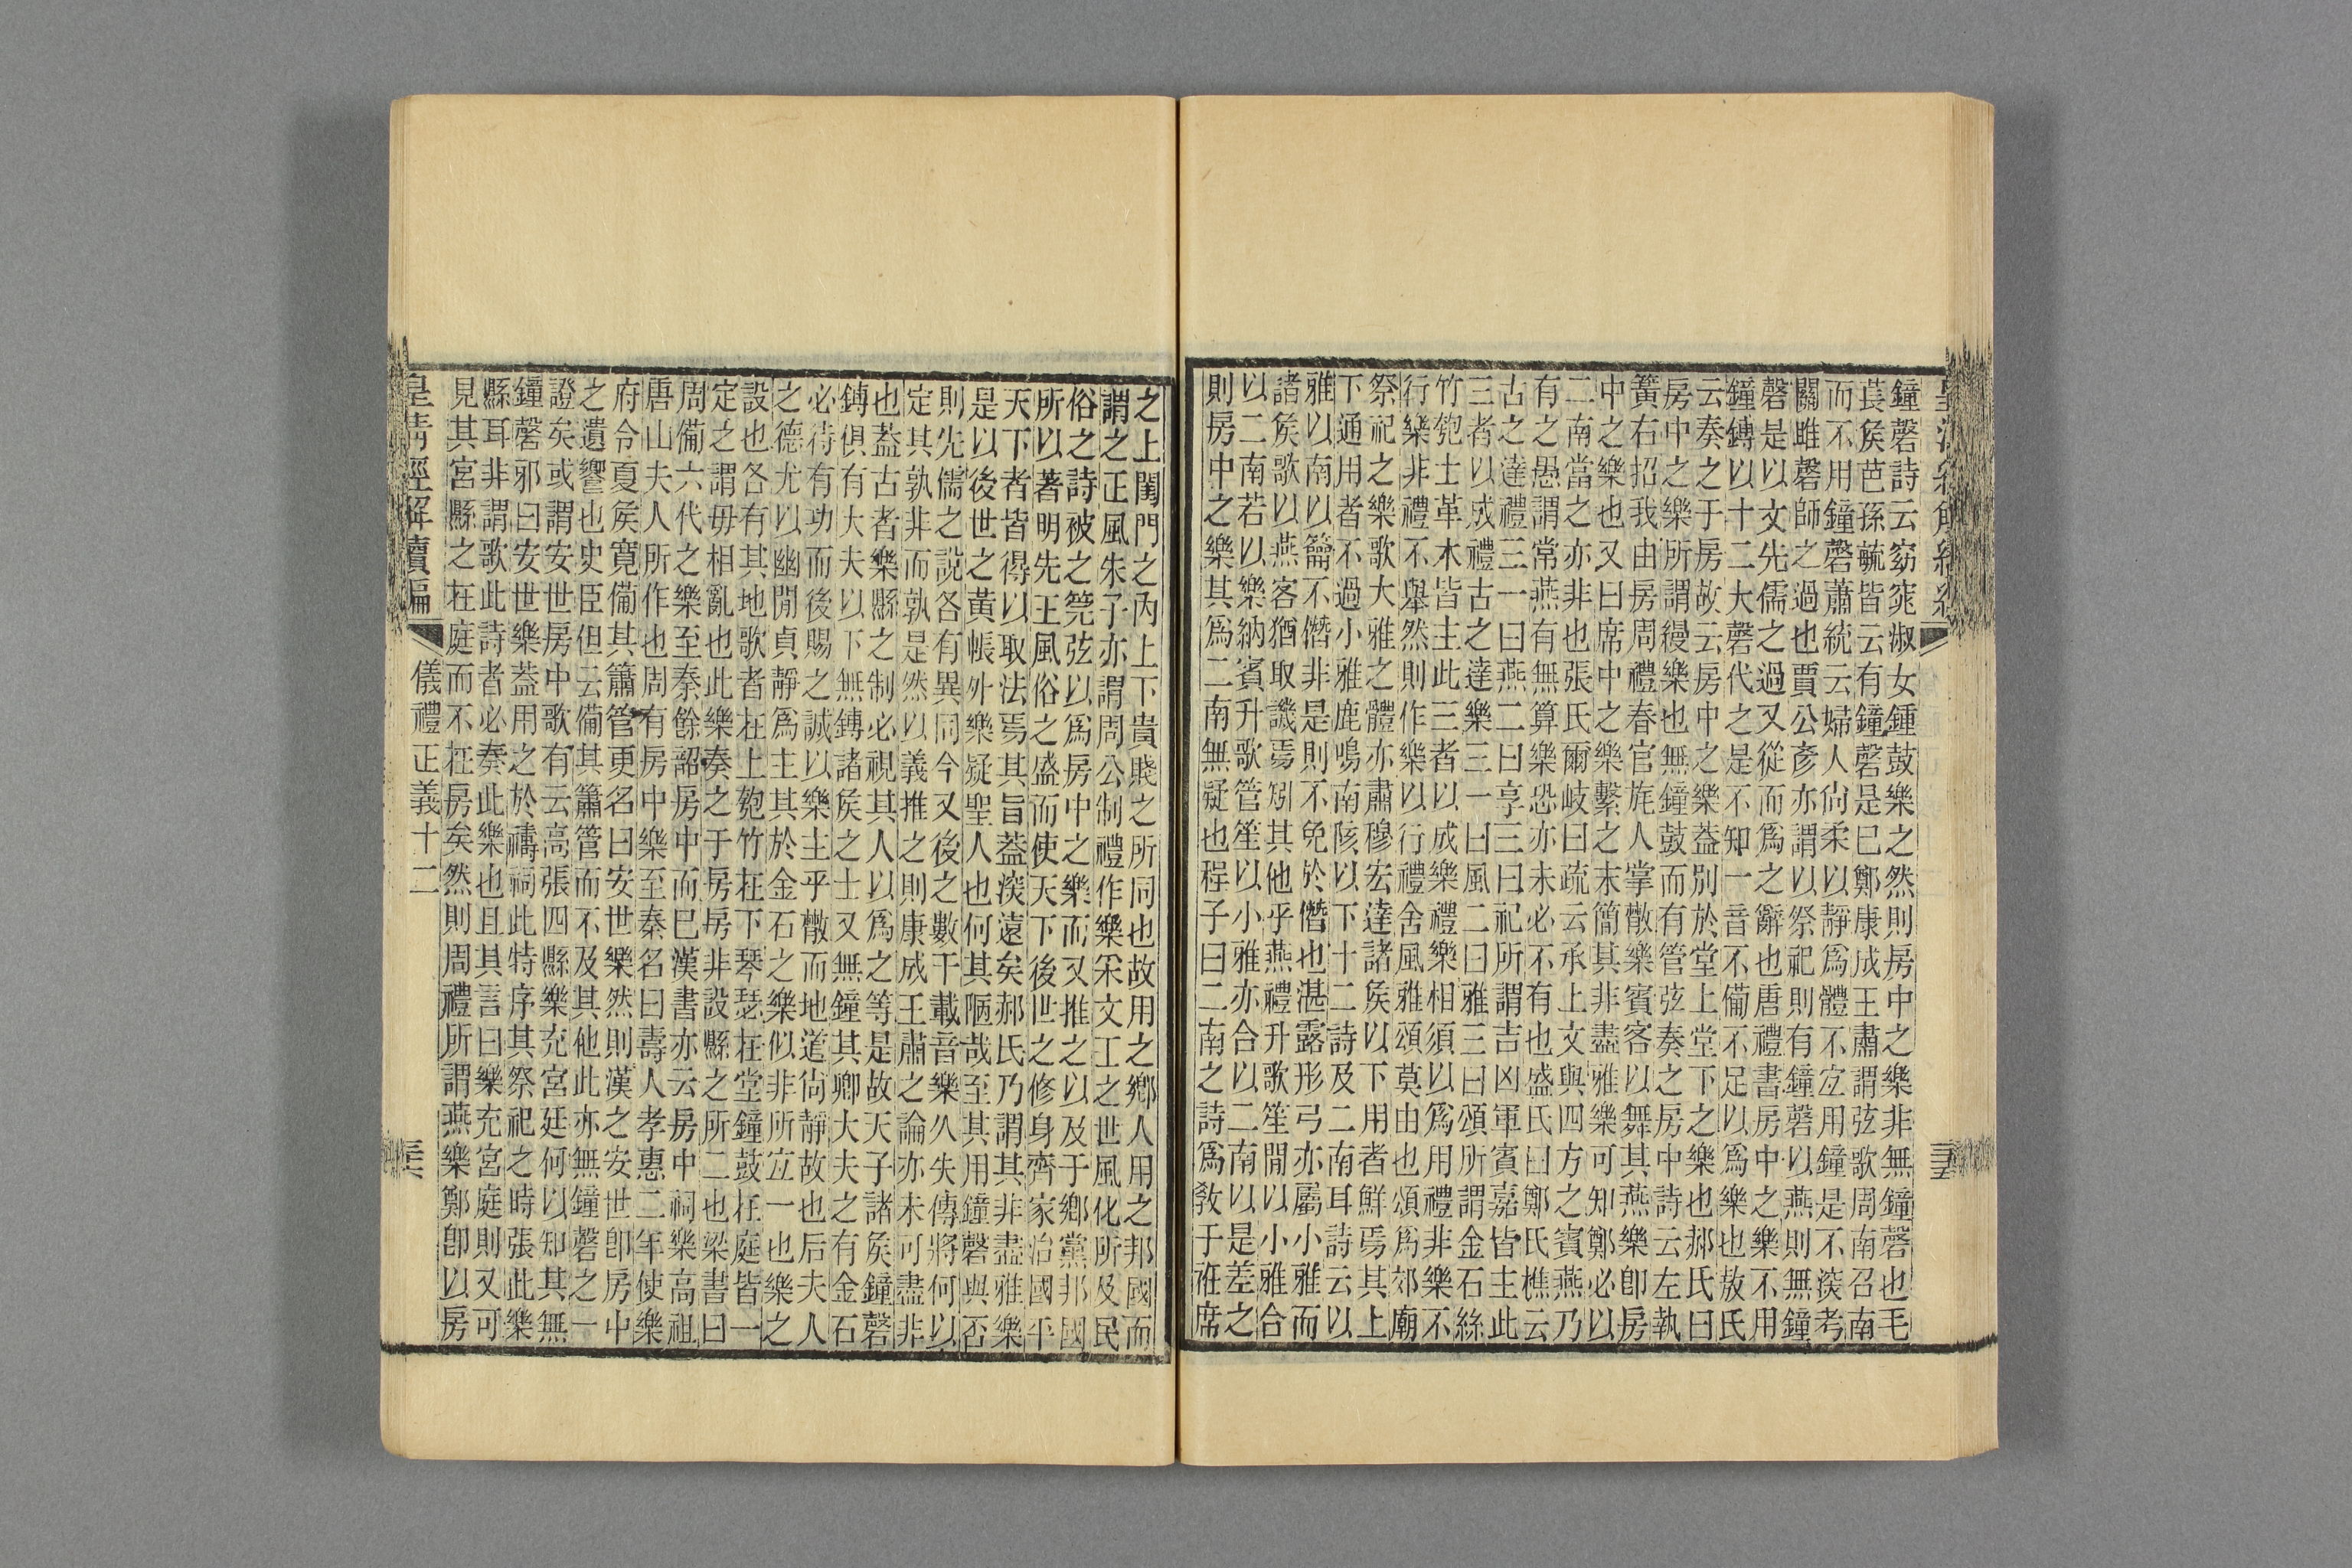 鐘磬詩云窈窕淑女鍾鼓樂之然則房中之樂非無鐘磬也毛
萇矦芭孫毓皆云有鐘磬是巳鄭康成王肅謂弦歌周南召南
而不用鐘磬蕭統云婦人尙柔以靜爲體不宐用鐘是不㴱考
關雎磬師之過也賈公彥亦謂以祭祀則有鐘磬以燕則無鐘
磬是以文先儒之過又從而爲之辭也唐禮書房中之樂不用
鐘鏄以十二大磬代之是不知一音不僃不足以爲樂也敖氏
云奏之于房故云房中之樂葢別於堂上堂下之樂也郝氏曰
房中之樂所謂縵樂也無鐘鼓而有管弦奏之房中詩云左執
簧右招我由房周禮春官旄人掌散樂賓客以舞其燕樂卽房
中之樂也又曰席中之樂繫之末簡其非盡雅樂可知鄭必以
二南當之亦非也張氏爾岐曰疏云承上文與四方之賓燕乃
有之愚謂常燕有無算樂恐亦未必不有也盛氏曰鄭氏樵云
古之達禮三一曰燕二曰享三曰祀所謂吉凶軍賓嘉皆主此
三者以成禮古之達樂三一曰風二曰雅三曰頌所謂金石絲
竹匏土革木皆主此三者以成樂禮樂相須以爲用禮非樂不
行樂非禮不舉然則作樂以行禮舍風雅頌莫由也頌爲郊廟
祭祀之樂歌大雅之體亦肅穆宏達諸矦以下用者鮮焉其上
下通用者不過小雅鹿鳴南陔以下十二詩及二南耳詩云以
雅以南以籥不僭非是則不免於僭也湛露彤弓亦屬小雅而
諸矦歌以燕客猶取譏焉矧其他乎燕禮升歌笙閒以小雅合
以二南若以樂納賓升歌管笙以小雅亦合以二南以是差之
則房中之樂其爲二南無疑也程子曰二南之詩爲敎于衽席
之上閨門之內上下貴賤之所同也故用之鄉人用之邦國而
謂之正風朱子亦謂周公制禮作樂采文王之世風化所及民
俗之詩被之筦弦以爲房中之樂而又推之以及于鄉黨邦國
所以著明先王風俗之盛而使天下後世之修身齊家治國平
天下者皆得以取法焉其旨葢㴱遠矣郝氏乃謂其非盡雅樂
是以後世之黃帳外樂疑聖人也何其陋哉至其用鐘磬與否
則先儒之說各有異同今又後之數千載音樂久失傳將何以
定其孰非而孰是然以義推之則康成王肅之論亦未可盡非
也葢古者樂縣之制必視其人以爲之等是故天子諸矦鐘磬
鏄俱有大夫以下無鏄諸矦之士又無鐘其卿大夫之有金石
必待有功而後賜之誠以樂主乎散而地道尙靜故也后夫人
之德尤以幽閒貞靜爲主其於金石之樂似非所宐一也樂之
設也各有其地歌者在上匏竹在下琴瑟在堂鐘鼓在庭皆一
定之謂毋相亂也此樂奏之于房房非設縣之所二也梁書曰
周僃六代之樂至秦餘韶房中而巳漢書亦云房中祠樂高祖
唐山夫人所作也周有房中樂至秦名曰壽人孝惠二年使樂
府令夏矦寬僃其簫管更名曰安世樂然則漢之安世卽房中
之遺響也史臣但云僃其簫管而不及其他此亦無鐘磬之一
證矣或謂安世房中歌有云高張四縣樂充宮廷何以知其無
鐘磬邪曰安世樂葢用之於禱祠此特序其祭祀之時張此樂
縣耳非謂歌此詩者必奏此樂也且其言曰樂充宮庭則又可
見其宮縣之在庭而不在房矣然則周禮所謂燕樂鄭卽以房
皇清經解續編
儀禮正義十二